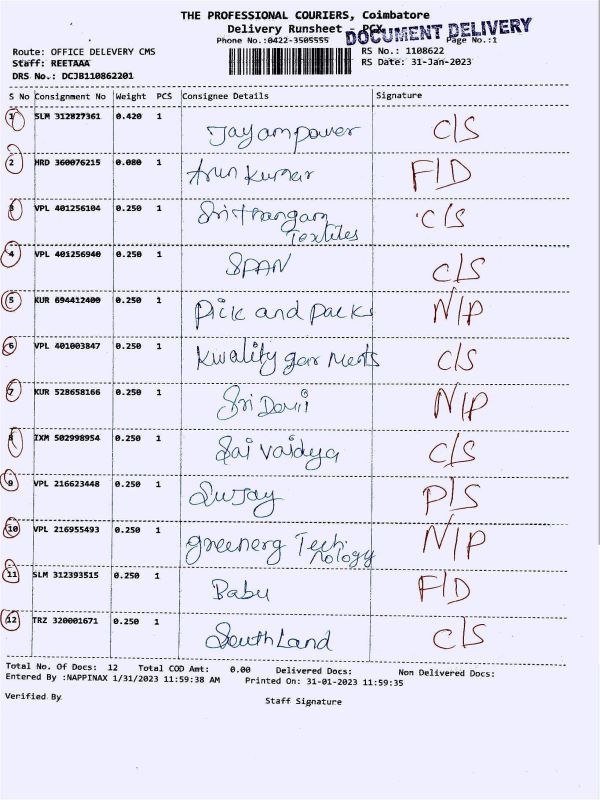 THE PROFESSIONAL COURIERS, Coimbatore
Delivery Runsheet - PCX
DOCUMENT DELIVERY
Phone No.:0422-3505555 Page No.:1
Route: OFFICE DELEVERY CMS RS No.: 1108622
Staff: REETAAA RS Date: 31-Jan-2023
DRS No.: DCJB110862201
S No Consignment No Weight PCS Consignee Details Signature
1 SLM 312827361 0.420 1 Jayampower C/S
2 HRD 360076215 0.080 1 Arun Kumar F/D
3 VPL 401256104 0.250 1 Srithangam C/S
Textiles
4 VPL 401256940 0.250 1 SPAN C/S
5 KUR 694412400 0.250 1 Pick and packs N/P
6 VPL 401003847 0.250 1 Kwality garments C/S
7 KUR 528658166 0.250 1 Sri Devii N/P
8 IXM 502998954 0.250 1 Sai Vaidya C/S
9 VPL 216623448 0.250 1 Sujay P/S
10 VPL 216955493 0.250 1 greenerg Tech N/P
nology
11 SLM 312393515 0.250 1 Babu F/D
12 TRZ 320001671 0.250 1 SouthLand C/S
Total No. Of Docs: 12 Total COD Amt: 0.00 Delivered Docs: Non Delivered Docs:
Entered By :NAPPINAX 1/31/2023 11:59:38 AM Printed On: 31-01-2023 11:59:35
Verified By Staff Signature